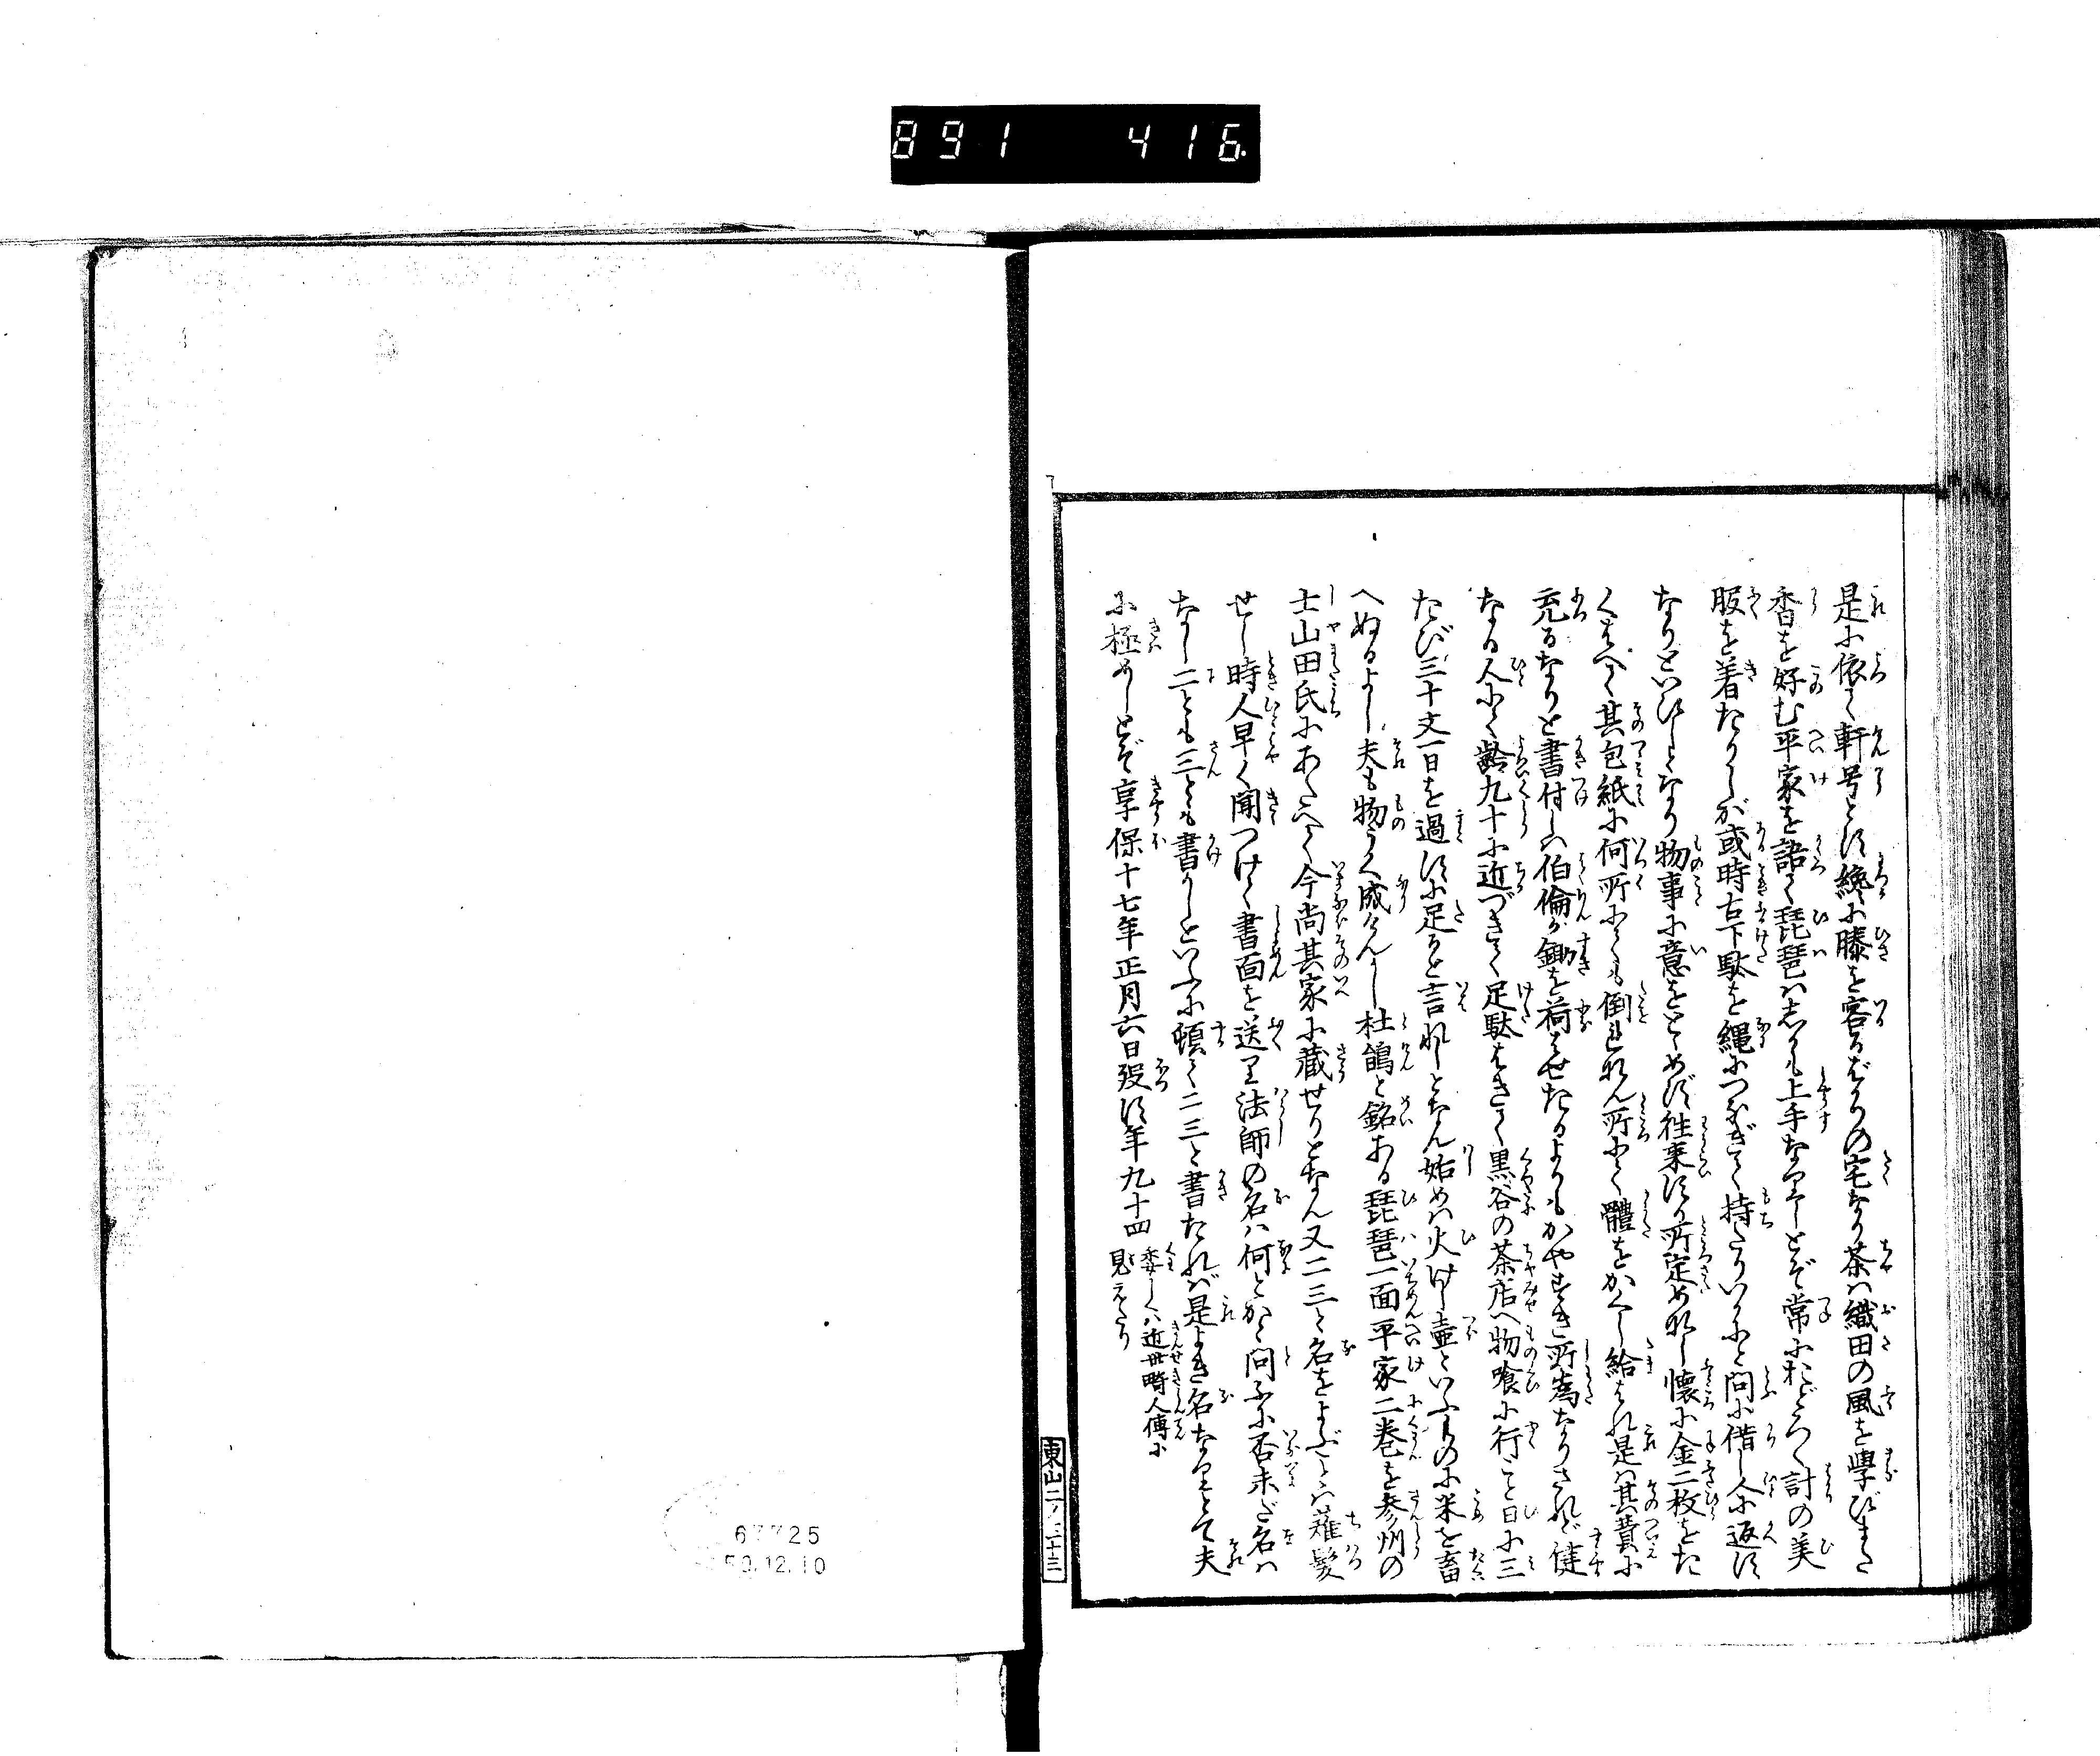 891 416
是に依て軒号とす纔に膝を容るばかりの宅なり茶は織田の風を學びまた
香を好む平家を語て琵琶はしかも上手なりしとぞ常におどろく計の美
服を着たりしが或時古下駄を縄につなぎて持たりいかにと問に借し人に返す
なりといひしとなり物事に意をとめず往来する所定めなし懐に金二枚をた
くはへて其包紙に何所にても倒れなん所にて體をかくし給はれ是は其費に
充るなりと書付しは伯倫が鋤を荷はせたるよりもかやすき所為なりされど健
なる人にて齢九十に近づきて足駄はきて黒谷の茶店へ物喰に行こと日に三
たび三十文一日を過すに足ると言れしとなん始めは火けし壷といふものに米を畜
へぬるよし夫も物うく成けんかし杜鵑と銘ある琵琶一面平家二巻を参州の
士山田氏にあたへて今尚其家に蔵せりとなん又二三と名をよぶことは薙髪
せし時人早く聞つけて書面を送り法師の名は何とかと問ふに否未だ名は
なし二とも三とも書かしといふに頓て二三と書たれば是よき名なりとて夫
に極めしとぞ享保十七年正月六日歿す年九十四
委しくは近世畸人傳に
見えたり
東山二ノ二十三
67725
59.12.10